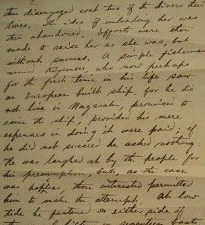 then disengaged over two of the divers their
lives. The idea of unloading her was
then abandoned. Efforts were then
made to raise her as she was, but
without success. A simple fisherman
named Kiyemon, who now perhaps
for the first time in his life saw
an European built ship, for he did
not live in Nagasaki, promised to
raise the ship, provided his mere
expenses in doing it were paid; if
he did not succeed he asked nothing.
He was laughed at by the people for
his presumption, but, as the case
was hopeless, those interested permitted
him to make the attempt. At low
tide he fastened on either side of
the seventeen boats